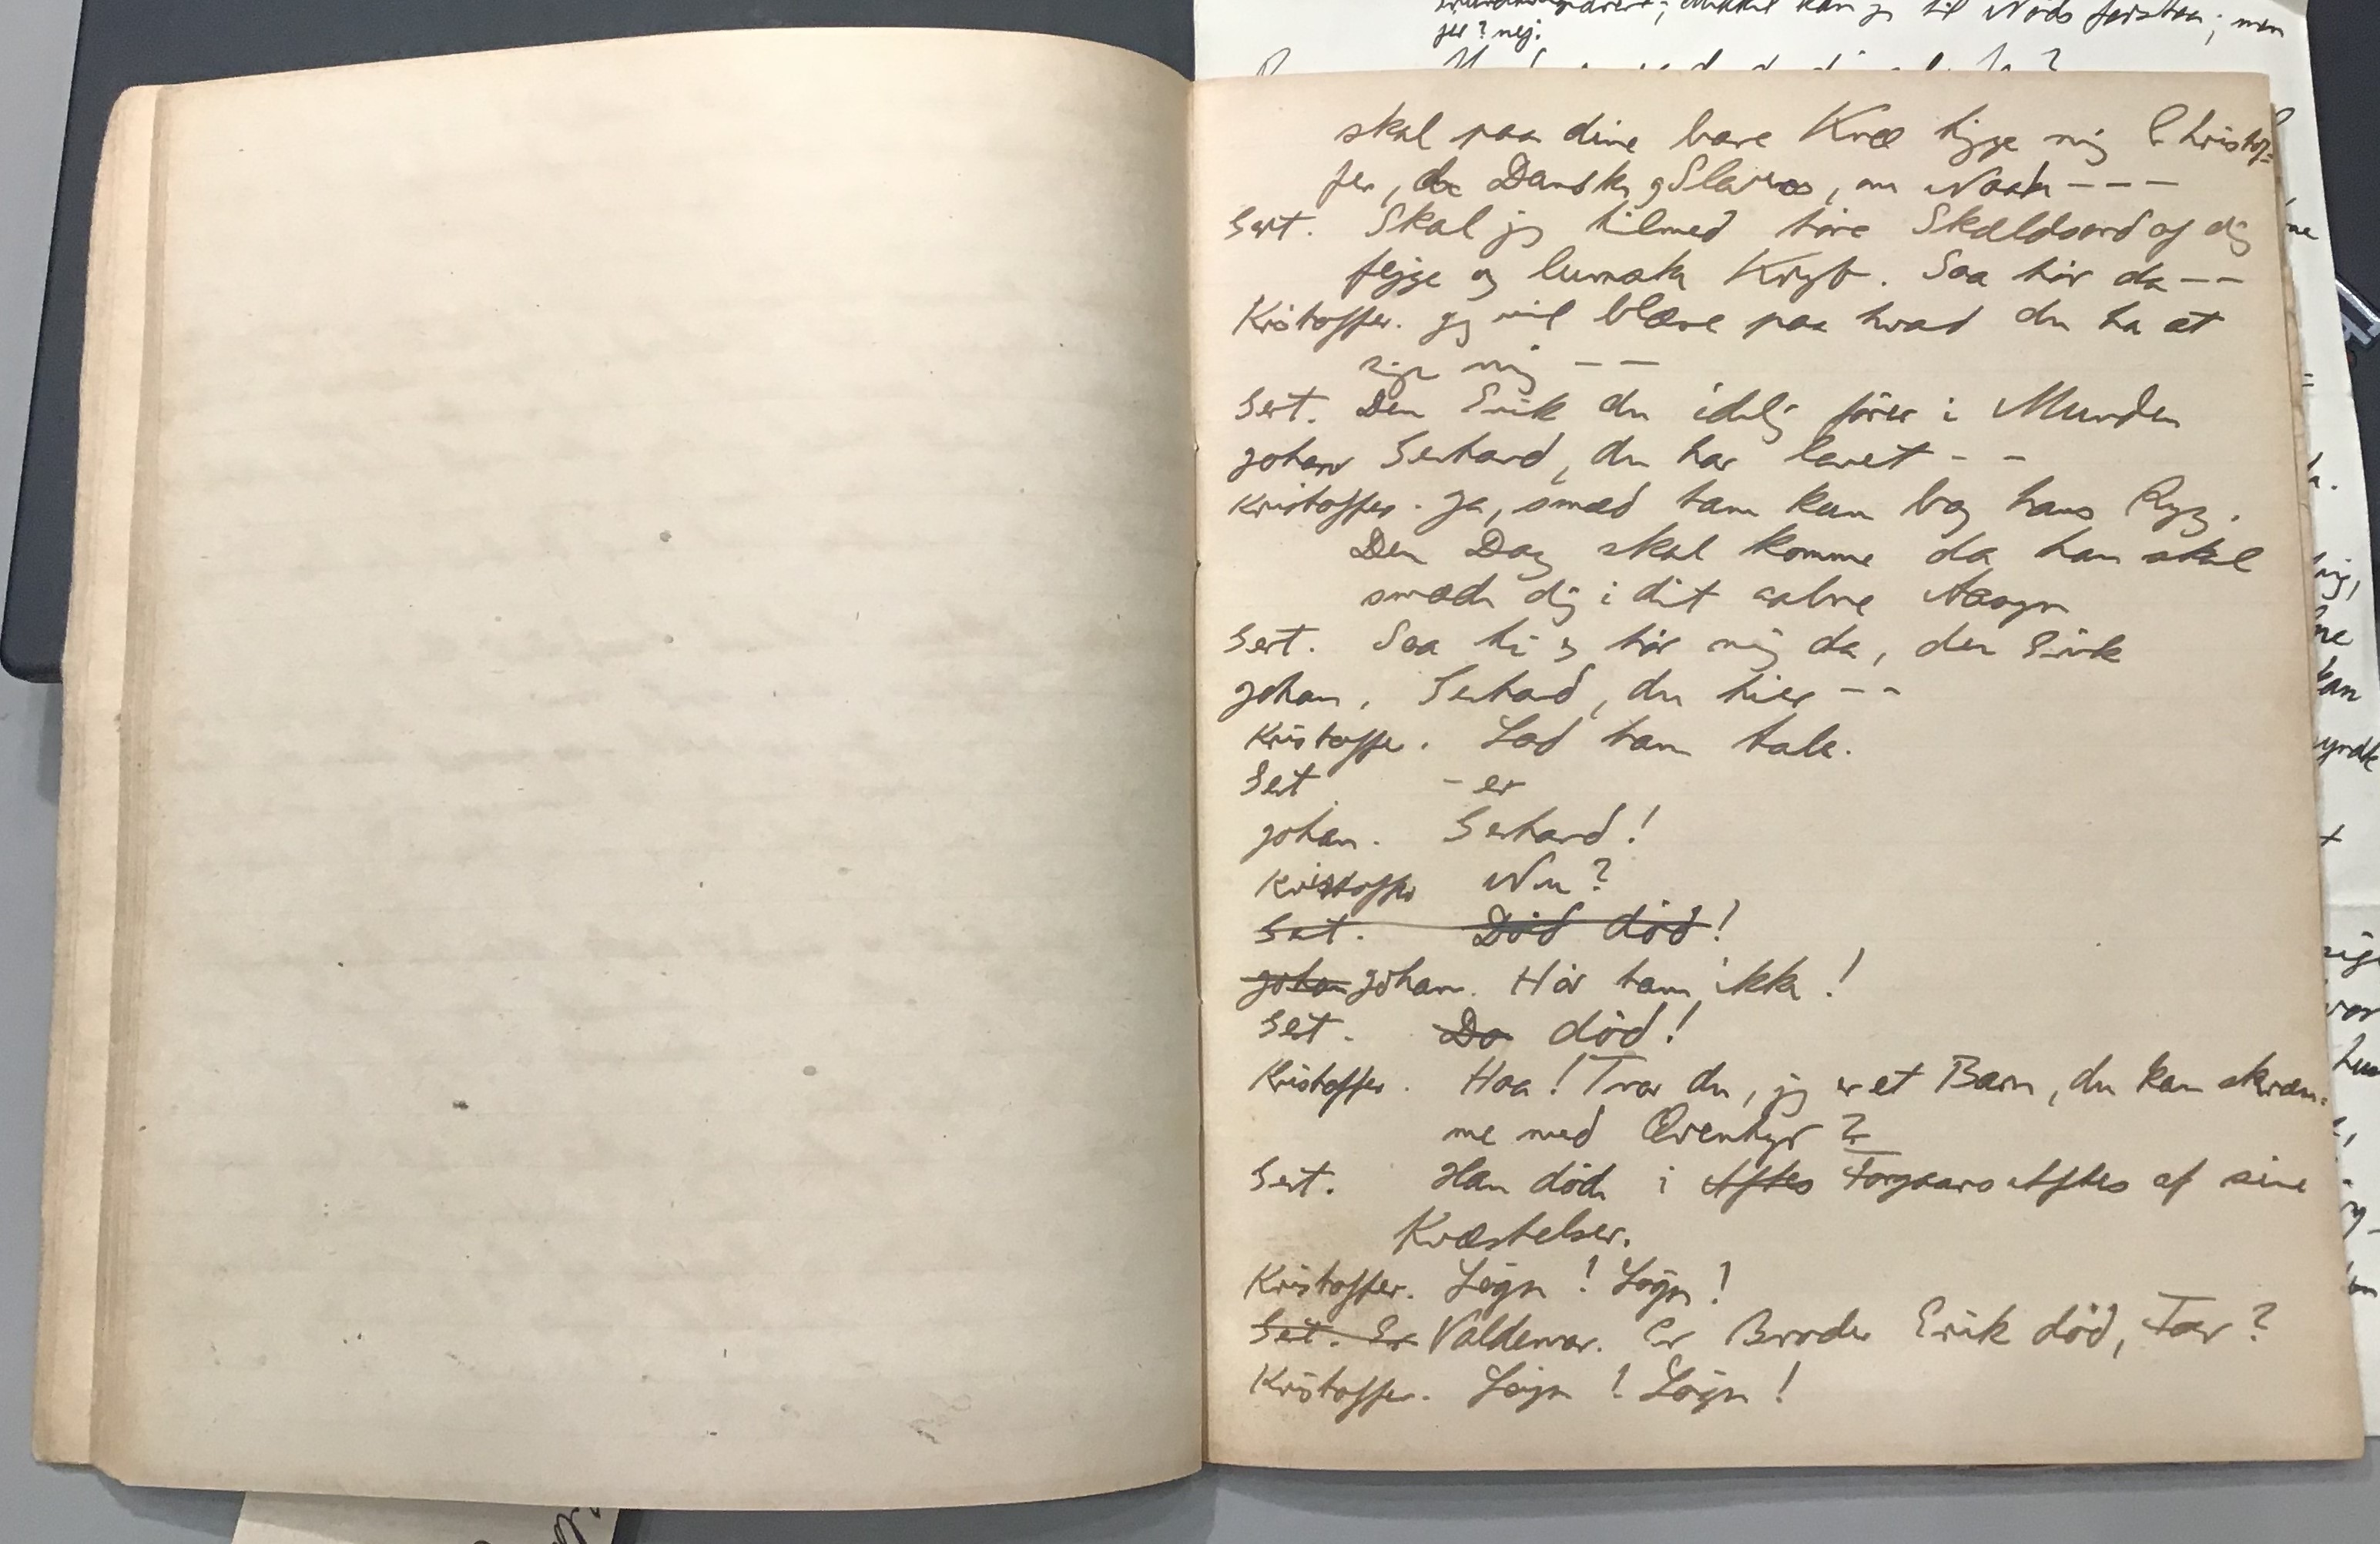 til Nöds forstaa; men
jer? nej.
skal paa dine bare Knæ tigge mig Christof=
fer, de Danskes og Slavers, om Naade - - -
Gert. Skal jeg tilmed höre Skældsord af dig
fejge og lumske Kryb. Saa hör da - -
Kristoffer. Jeg vil blæse paa hvad du ha at
sige mig - -
Gert. Den Erik du idelig förer i Munden
Johan Gerhard, du har lovet - -
Kristoffer. Ja, smæd ham kun bag hans Ryg.
Den Dag skal komme da han skal
smæde dig i dit aabne Aasyn
Gert. Saa ti og hör mig da, den Erik
Johan. Gerhard, du tier - -
Kristoffer. Lad ham tale.
Gert - er
Johan. Gerhard!
Kristoffer Nu?
Gert. Död död!
Johan Johan. Hör ham ikke!
Gert. Dö död!
Kristoffer. Haa! Tror du, jeg er et Barn, du kan skræm=
me med Æventyr?
Gert. Han döde i Aftes Forgaars Aftes af sine
Kvæstelser.
Kristoffer. Lögn! Lögn!
Gert. Er Valdemar. Er Broder Erik död, Far?
Kristoffer. Lögn! Lögn!